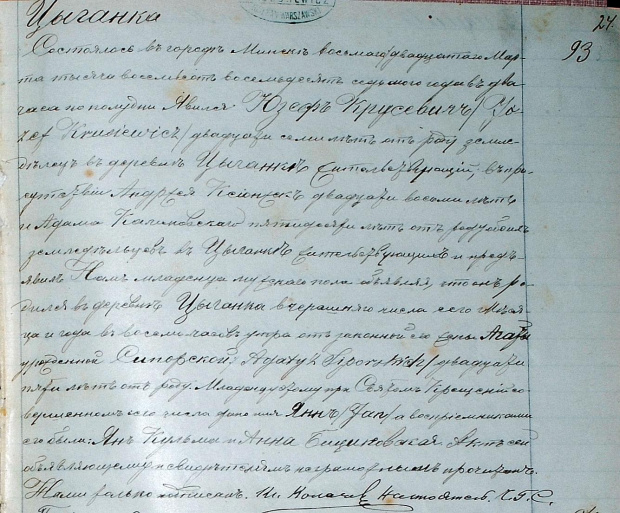 Цыганка
24.
93
Состоялось въ городѣ Минскѣ восьмаго/двадцатаго Мар-
та тысяча восемьсотъ восемьдесятъ седьмаго года въ два
часа по полудни. Явился Юзефъ Крусевичъ /Jo-
zef Krusiewicz/ двадцати семи лѣтъ отъ роду земле-
дѣлецъ въ деревнѣ Цыганкѣ жительствующій, въ при-
сутствіи Андрея двадцати восьми лѣтъ
и Адама Калиновскаго пятидесяти лѣтъ отъ роду обоихъ
земледѣльцевъ въ Цыганкѣ жительствующихъ и предъ-
явилъ Намъ младенца мужскаго пола объявляя, что онъ ро-
дился въ деревнѣ Цыганка вчерашняго числа сего мѣся-
ца и года въ восемь часовъ утра отъ законной его жены Агаты
урожденной двадцати
пяти лѣтъ отъ роду. Младенцу этому при Святомъ Крещеніи со-
вершенномъ сего числа дано имя Янъ /Jan/ а воспріемниками
его были: Янъ Кульма и Анна Актъ сей
объявляющему и свидѣтелямъ неграмотнымъ прочитанъ.
Нами только подписанъ.